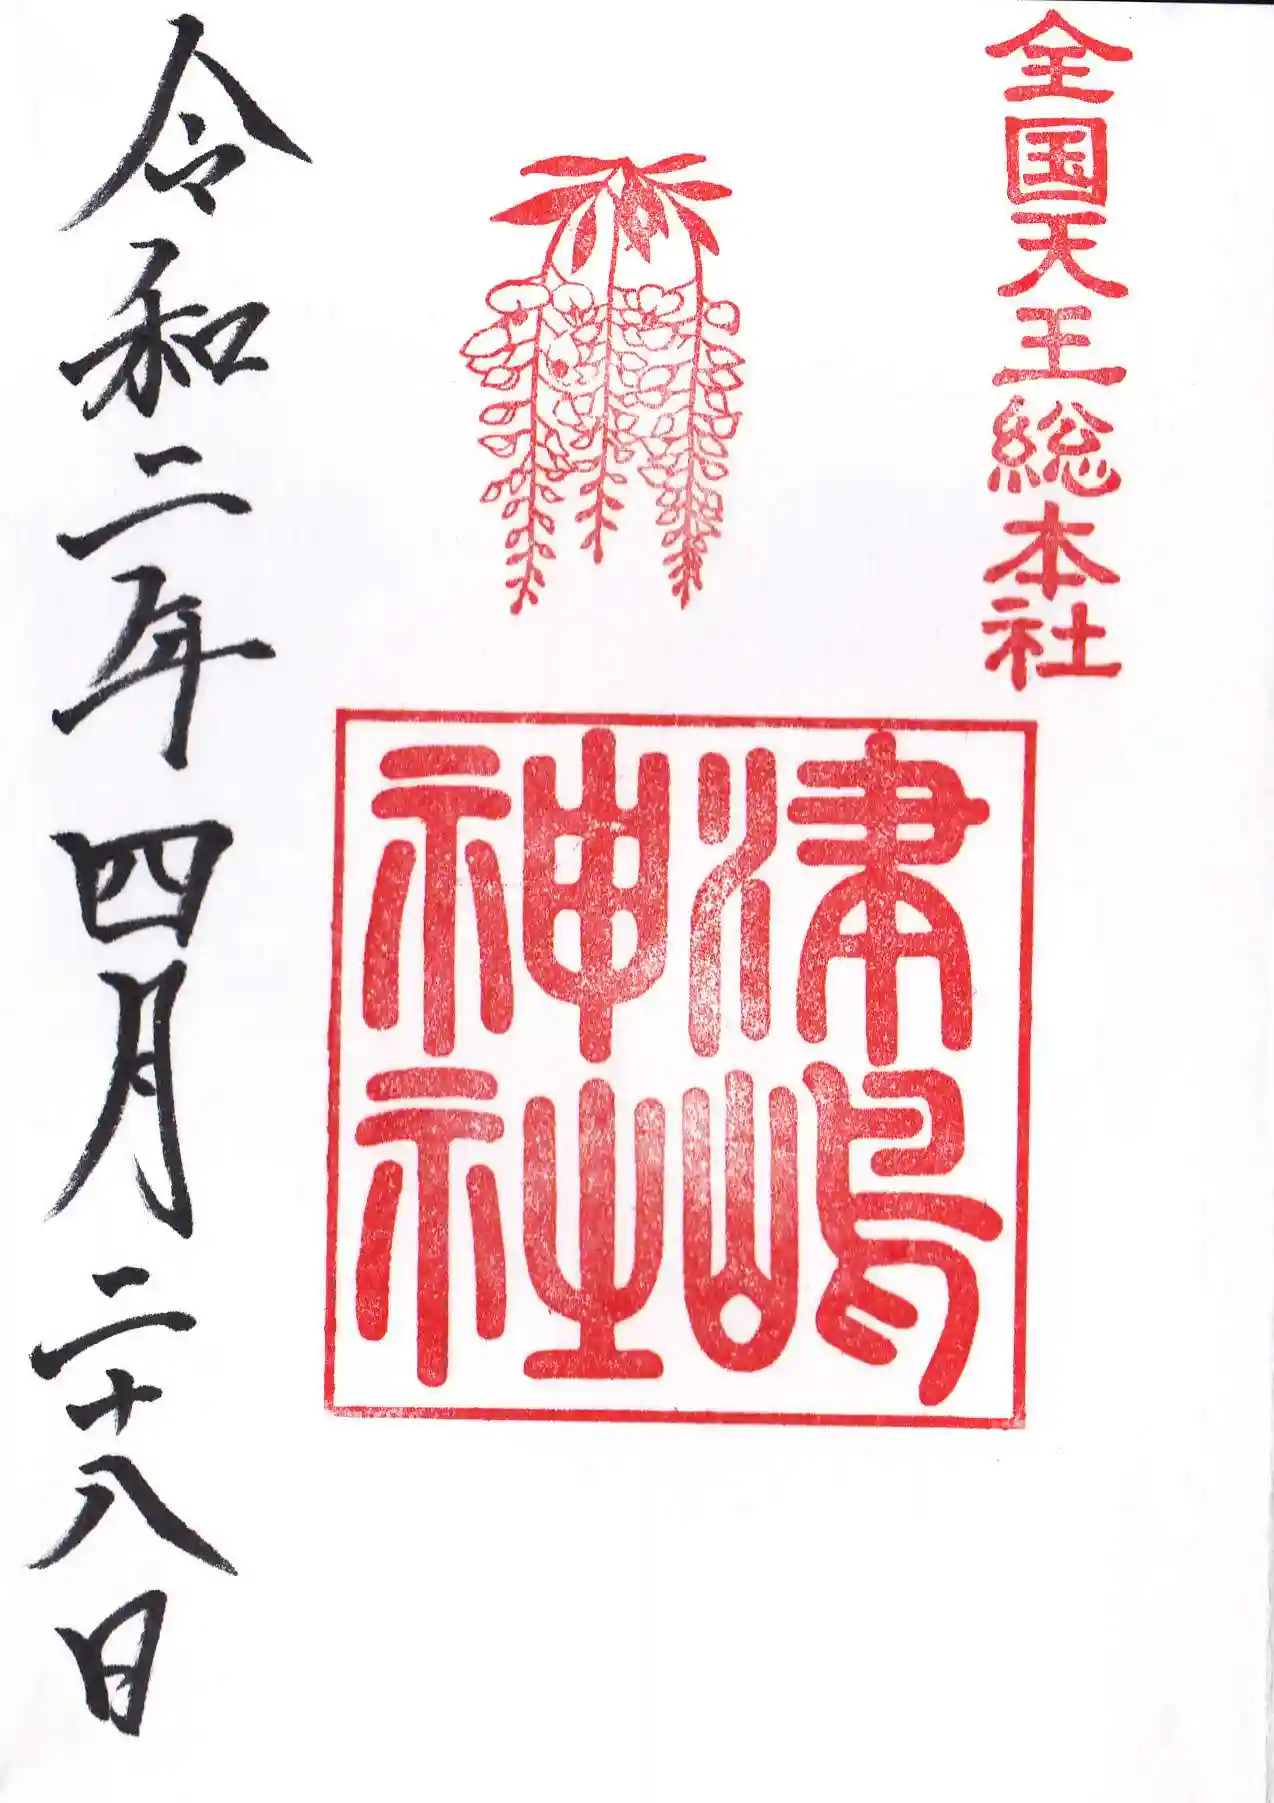 全国天王総本社
津嶋
神社
令和二年四月二十八日